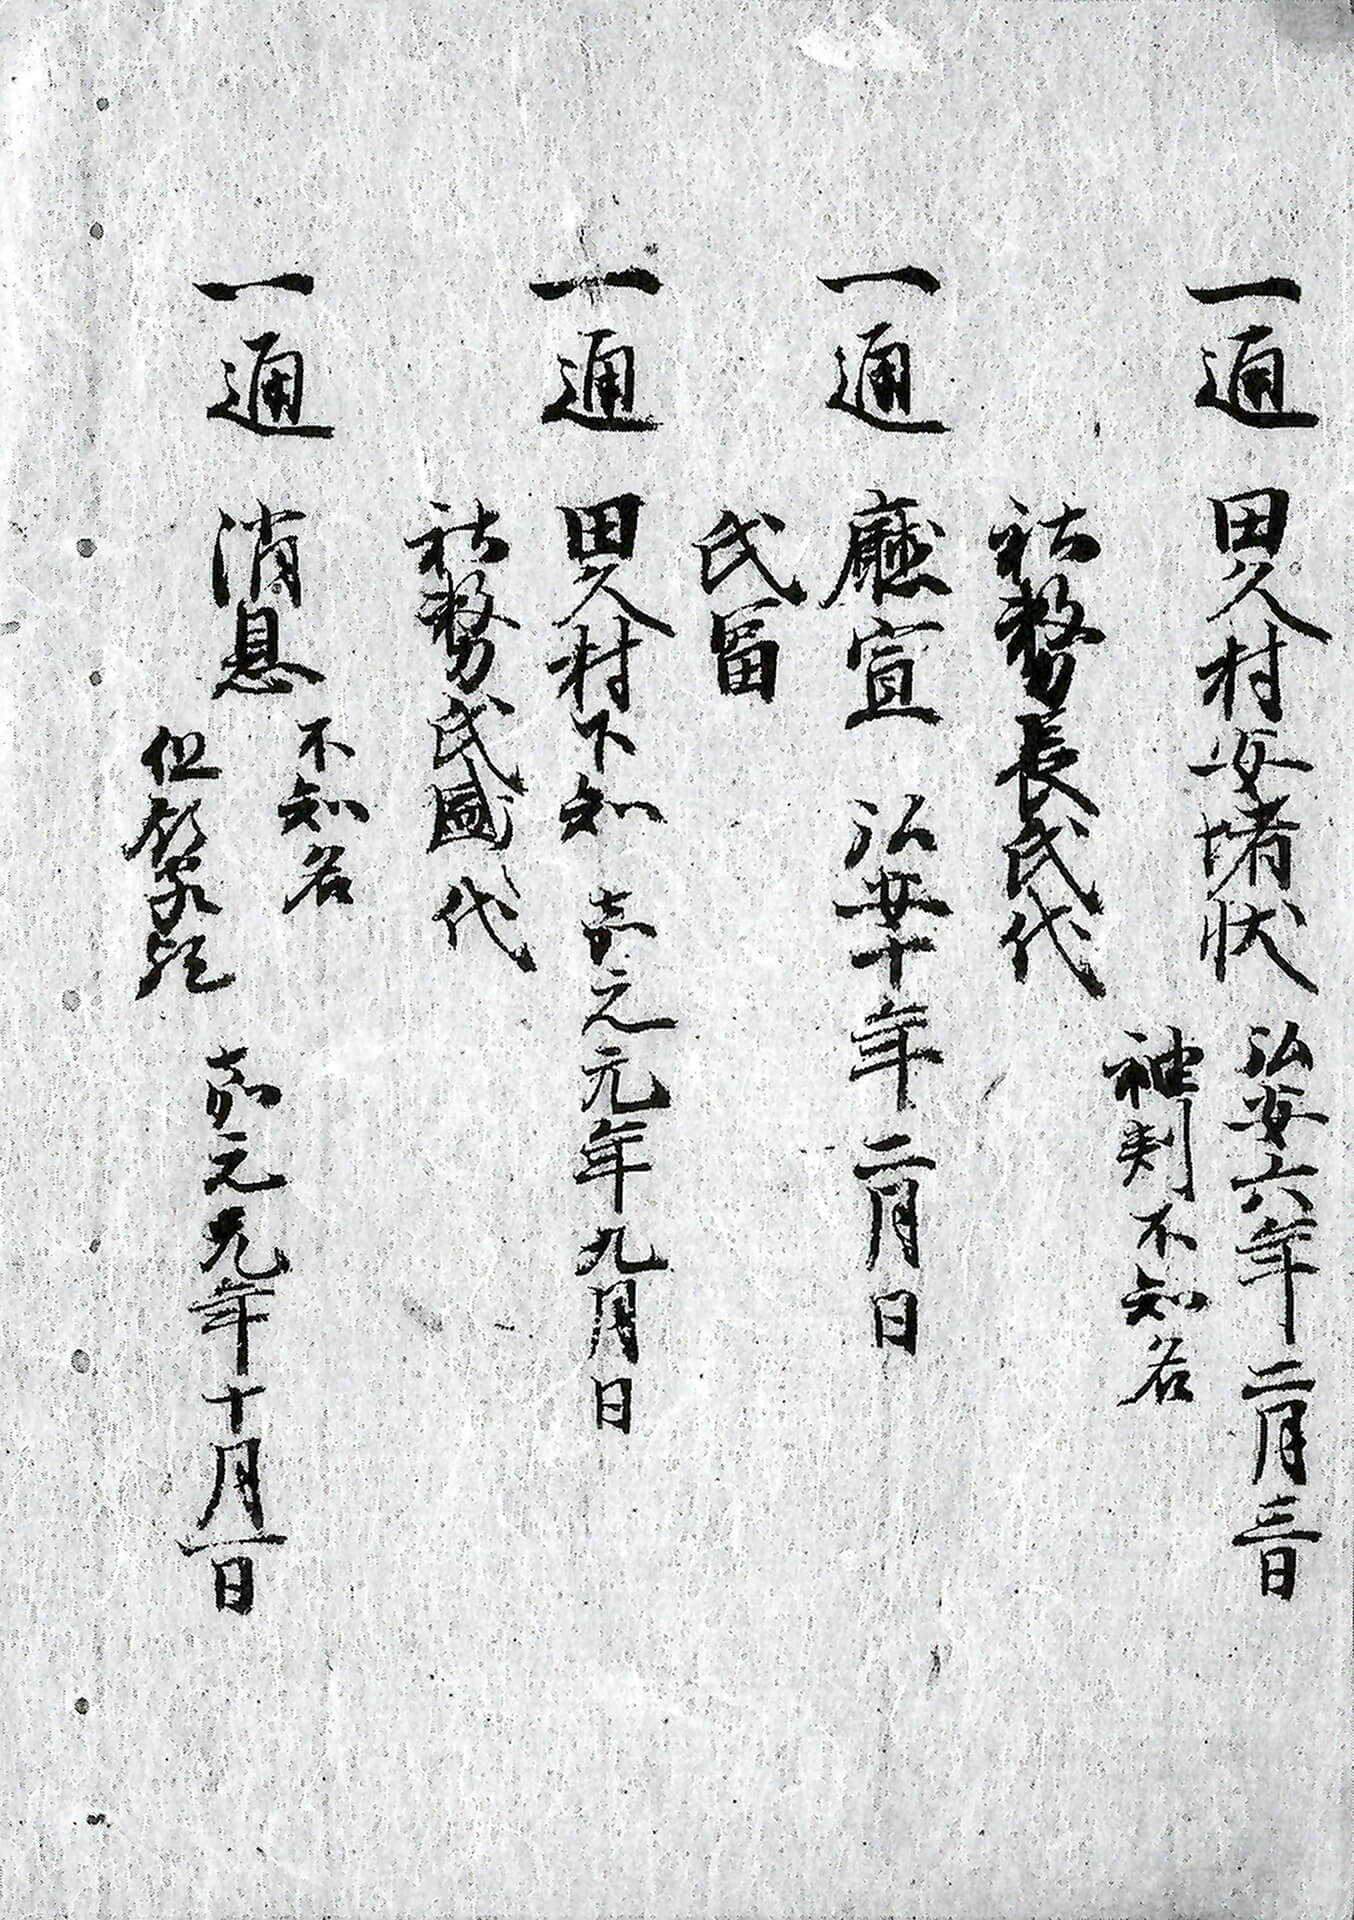 一通 田久村安堵状 弘安六年二月三日
袖判不知名
社務長氏代
一通 廳宣 弘安十年二月日
氏冨
一通 田久村下知 嘉元元年九月日
社務氏國代
一通 消息 不知名
但領家歟
嘉元元年十月一日